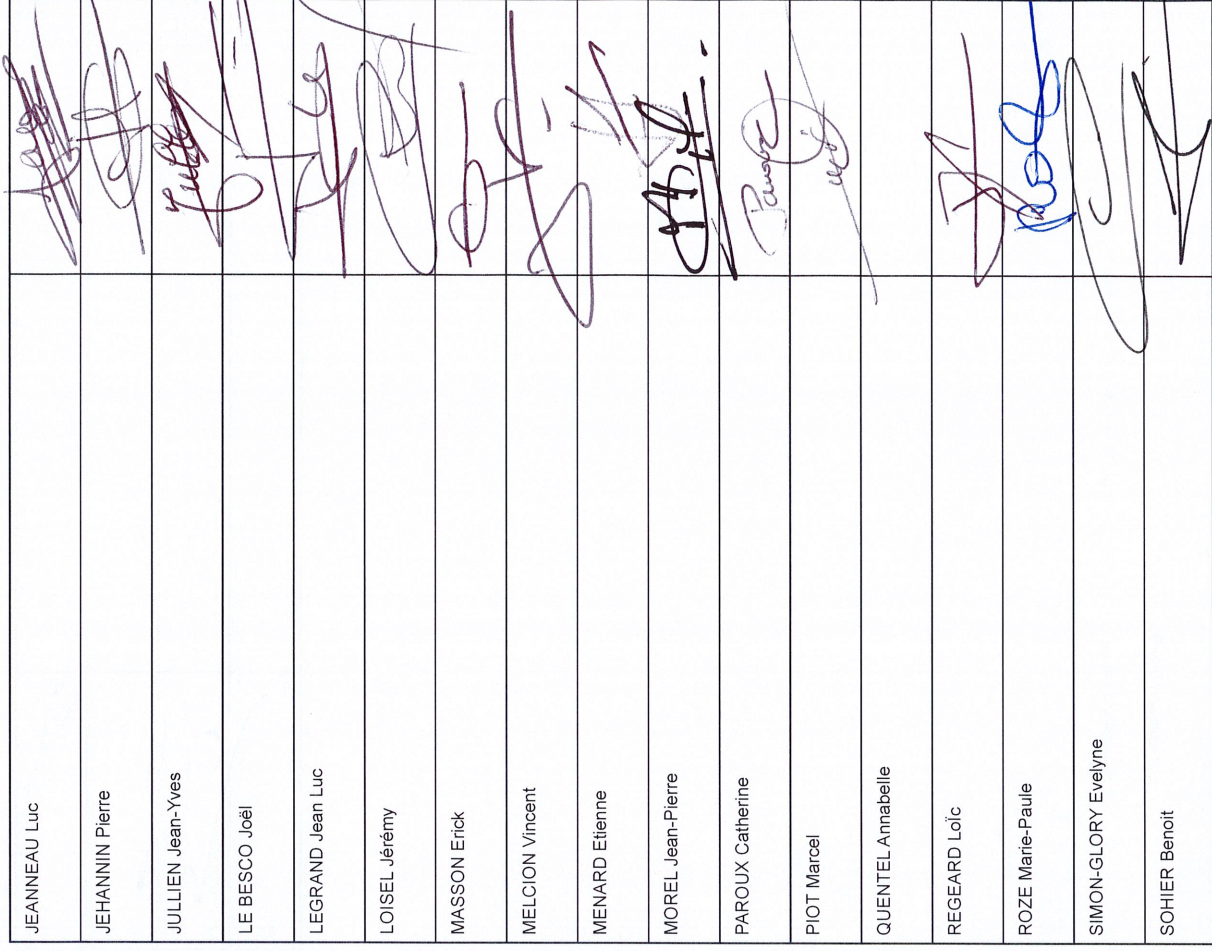 JEANNEAU Luc
JEHANNIN Pierre
JULLIEN Jean-Yves
LE BESCO Joël
LEGRAND Jean Luc
LOISEL Jérémy
MASSON Erick
MELCION Vincent
MENARD Etienne
MOREL Jean-Pierre
PAROUX Catherine
PIOT Marcel
QUENTEL Annabelle
REGEARD Loïc
ROZE Marie-Paule
SIMON-GLORY Evelyne
SOHIER Benoit